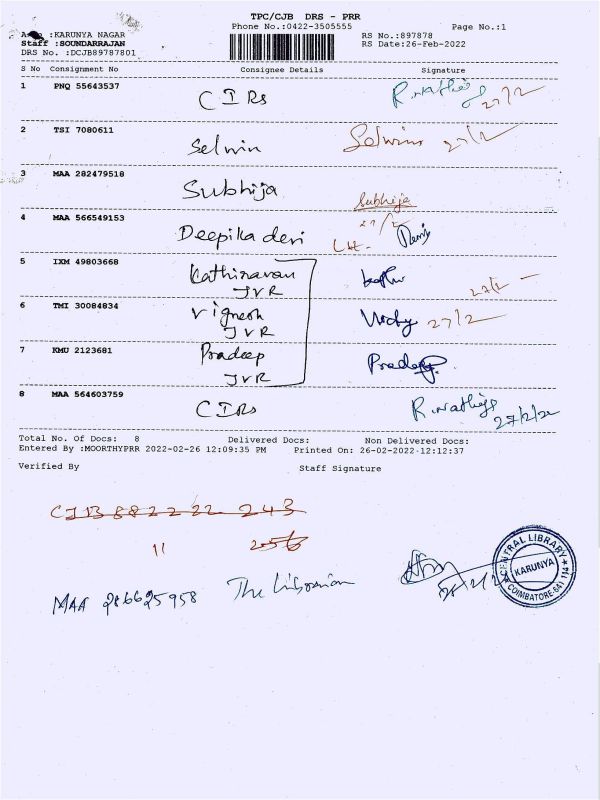 TPC/CJB DRS - PRR
Phone No.:0422-3505555 Page No.:1
:KARUNYA NAGAR RS No.:897878
Staff :SOUNDARRAJAN RS Date:26-Feb-2022
DRS No. :DCJB89787801
S No Consignment No Consignee Details Signature
1 PNQ 55643537 CIRs 27/2
2 TSI 7080611 Selwin Selwin 27/2
3 MAA 282479518 Subhija Subhija
27/2
4 MAA 566549153 Deepika devi
5 IXM 49803668 Kathiravan 27/2
JVR
6 TMI 30084834 Vignesh 27/2
JVR
7 KMU 2123681 Pradeep Pradeep
JVR
8 MAA 564603759 CIRs 27/2/22
Total No. Of Docs: 8 Delivered Docs: Non Delivered Docs:
Entered By :MOORTHYPRR 2022-02-26 12:09:35 PM Printed On: 26-02-2022-12:12:37
Verified By Staff Signature
CJB 882222 243
11 256
MAA 286625958 The Librarian
CENTRAL LIBRARY
KARUNYA
COIMBATORE-641 114